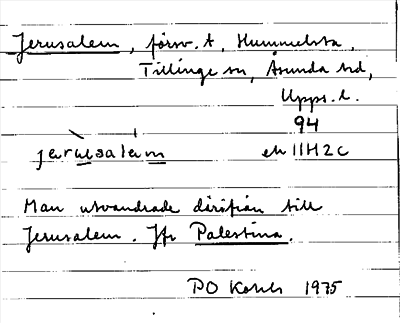 Jerusalem, försv. t, Hummelsta,
Tillinge sn, Åsunda hd,
Upps. l.
94
jerusalem ek 11H2c
Man utvandrade därifrån till
Jerusalem. Jfr Palestina.
PO 1975